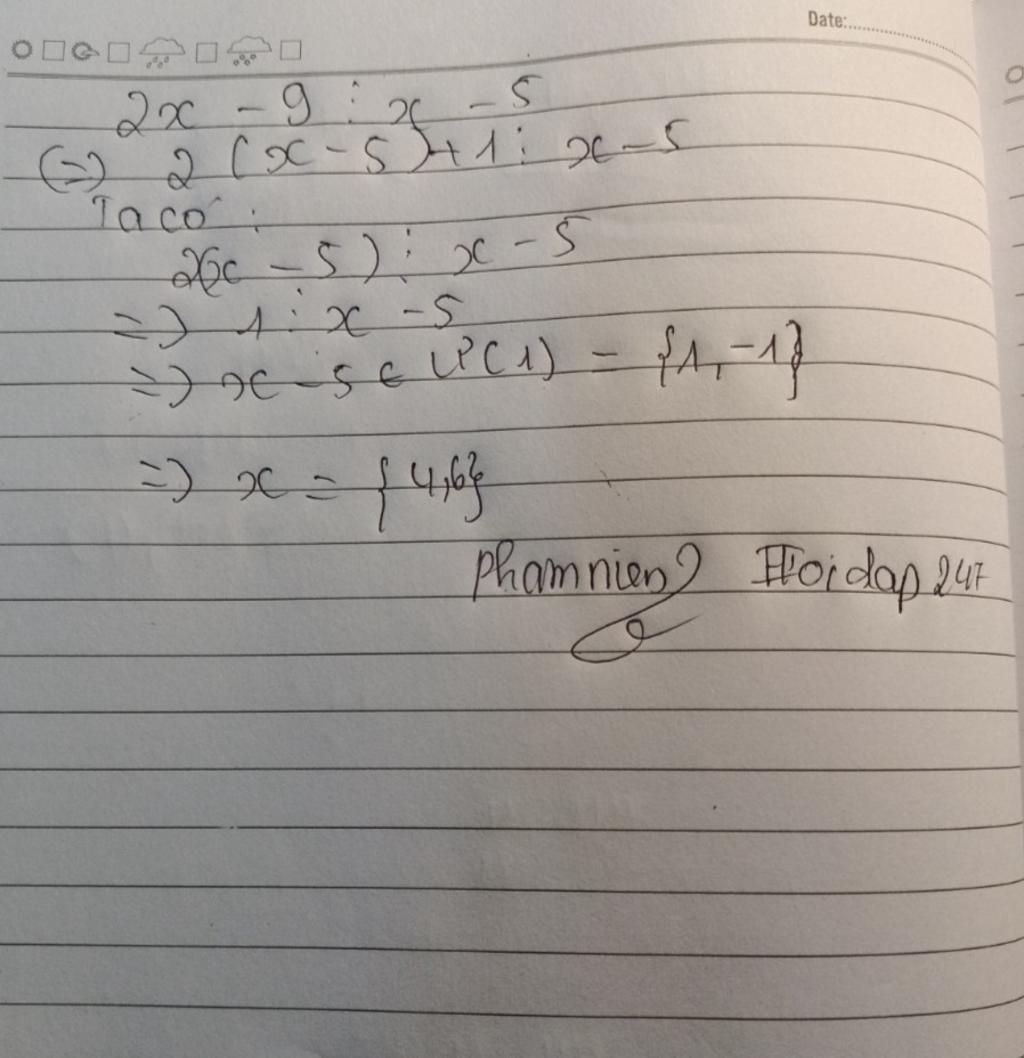 Date:
2x - 9 ⋮ x - 5
(=) 2 (x - 5) + 1 ⋮ x - 5
Ta có :
2(x - 5) ⋮ x - 5
=) 1 ⋮ x - 5
=) x - 5 ∈ Ư(1) = {1, -1}
=) x = {4,6}
Phamnien2 Hoidap 247